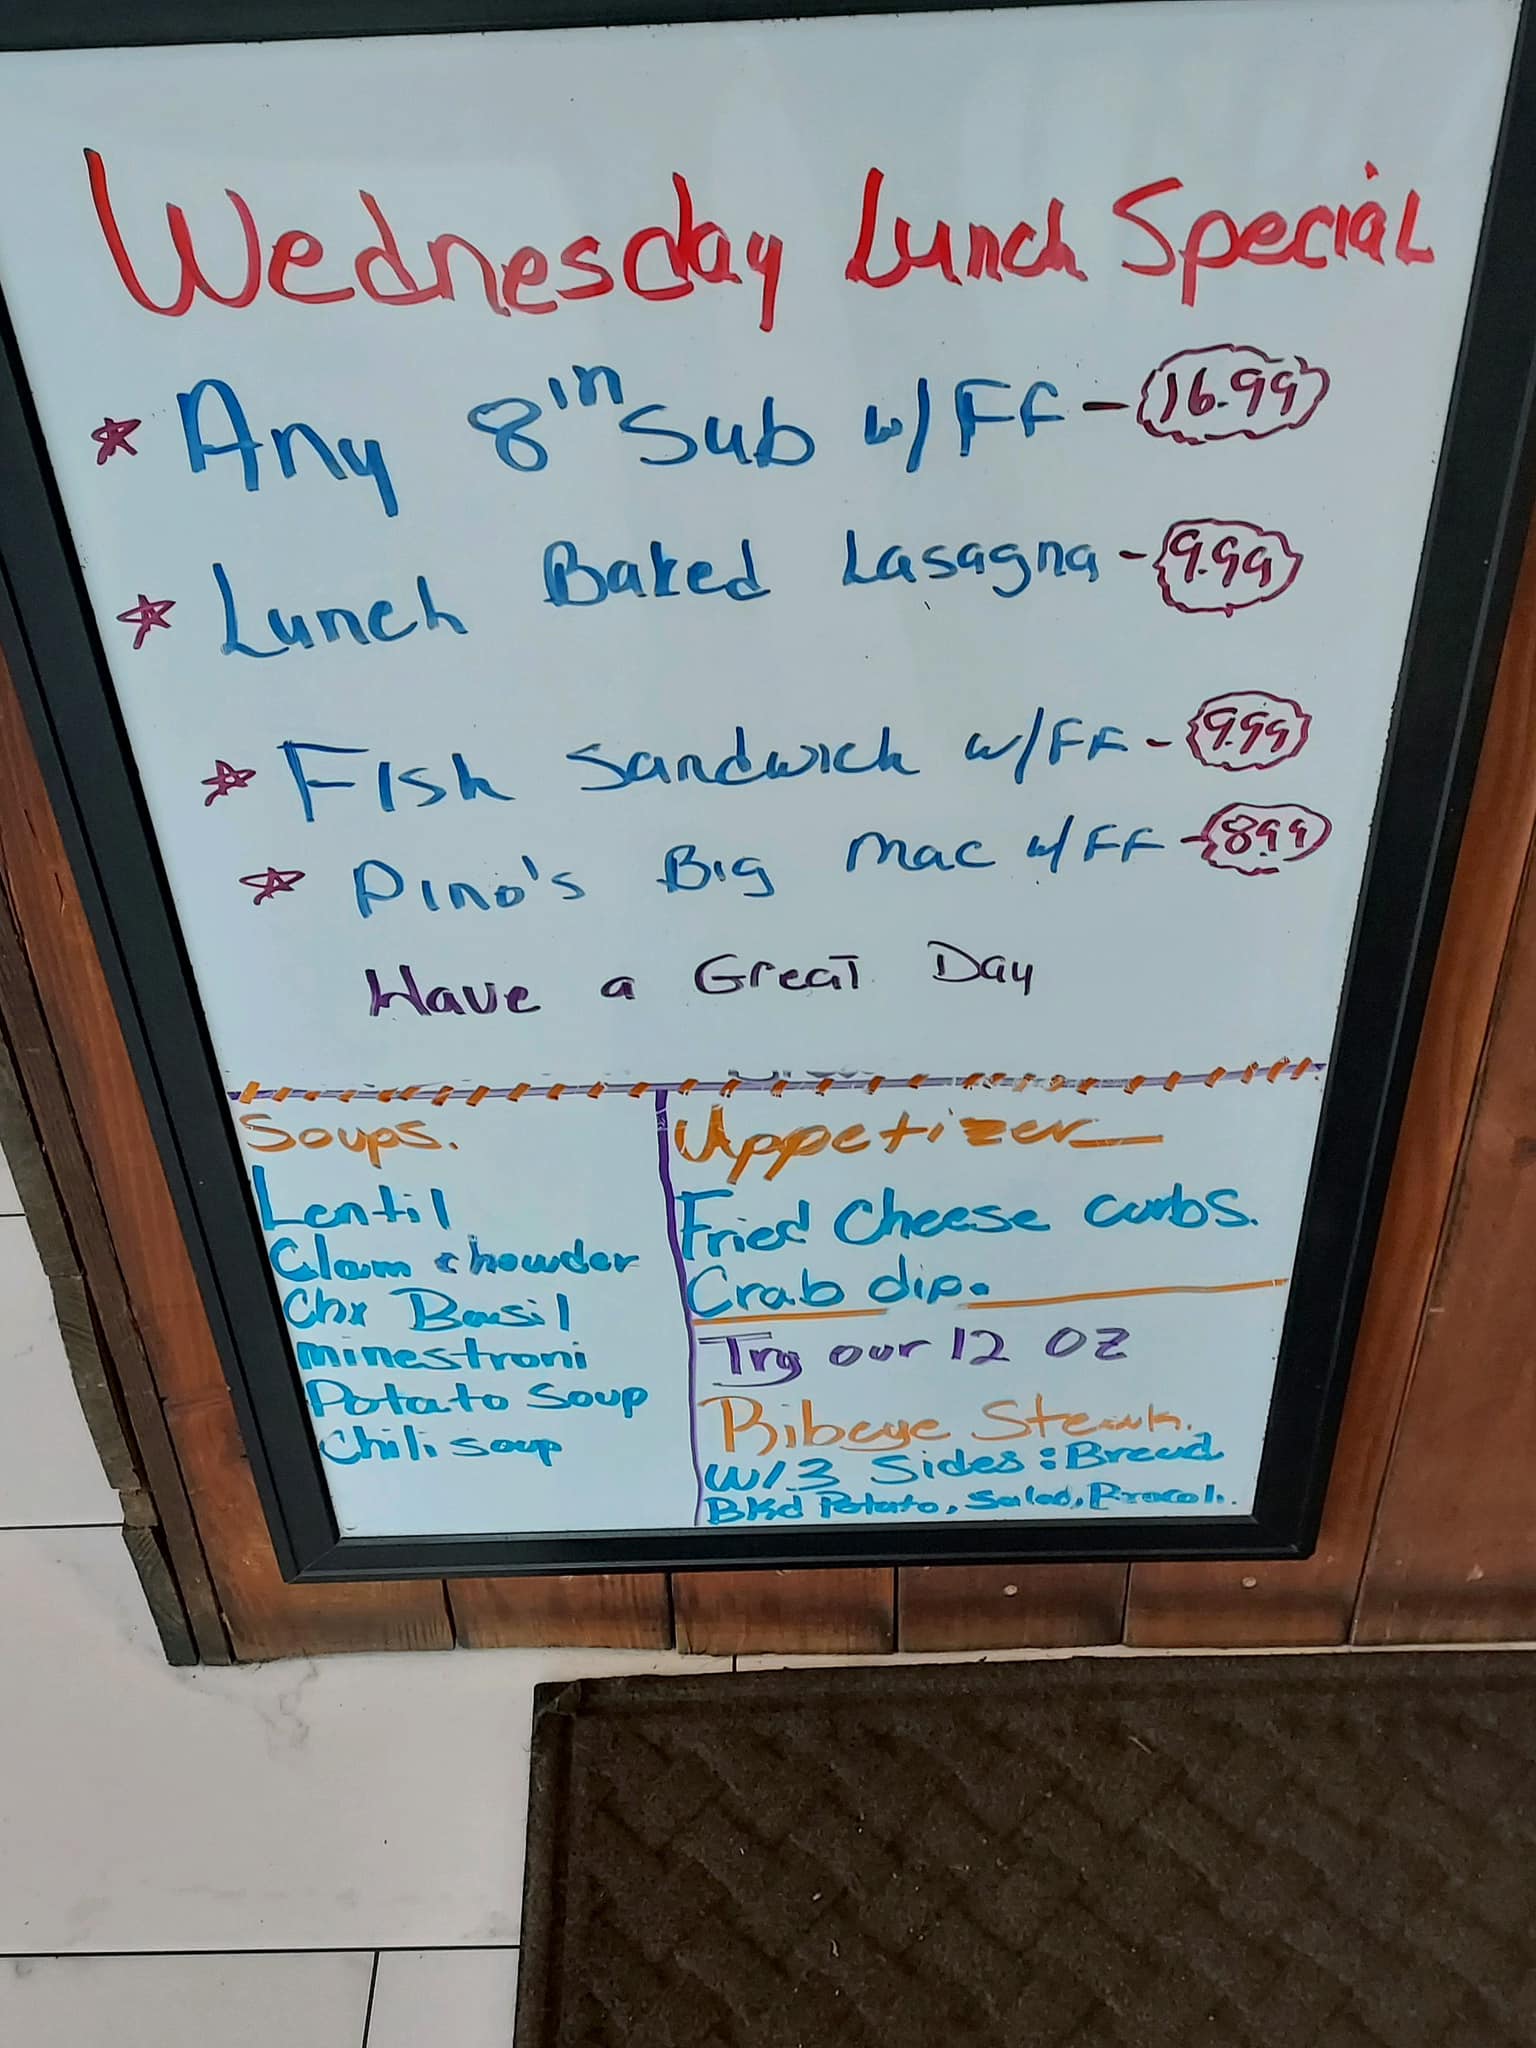 Wednesday Lunch Special
Any 8in Sub w/FF - 16.99
Lunch Baked Lasagna - 9.99
Fish Sandwich w/FF - 9.99
Pino's Big Mac w/FF - 899
Have a Great Day
Soups.
Lentil
Clam chowder
Chx Basil
minestroni
Potato Soup
Chili soup
Appetizer
Fried Cheese curbs.
Crab dip.
Try our 12 OZ
Ribeye Steak.
W/3 Sides: Bread
BKd Potato, Salad, Brocoli.